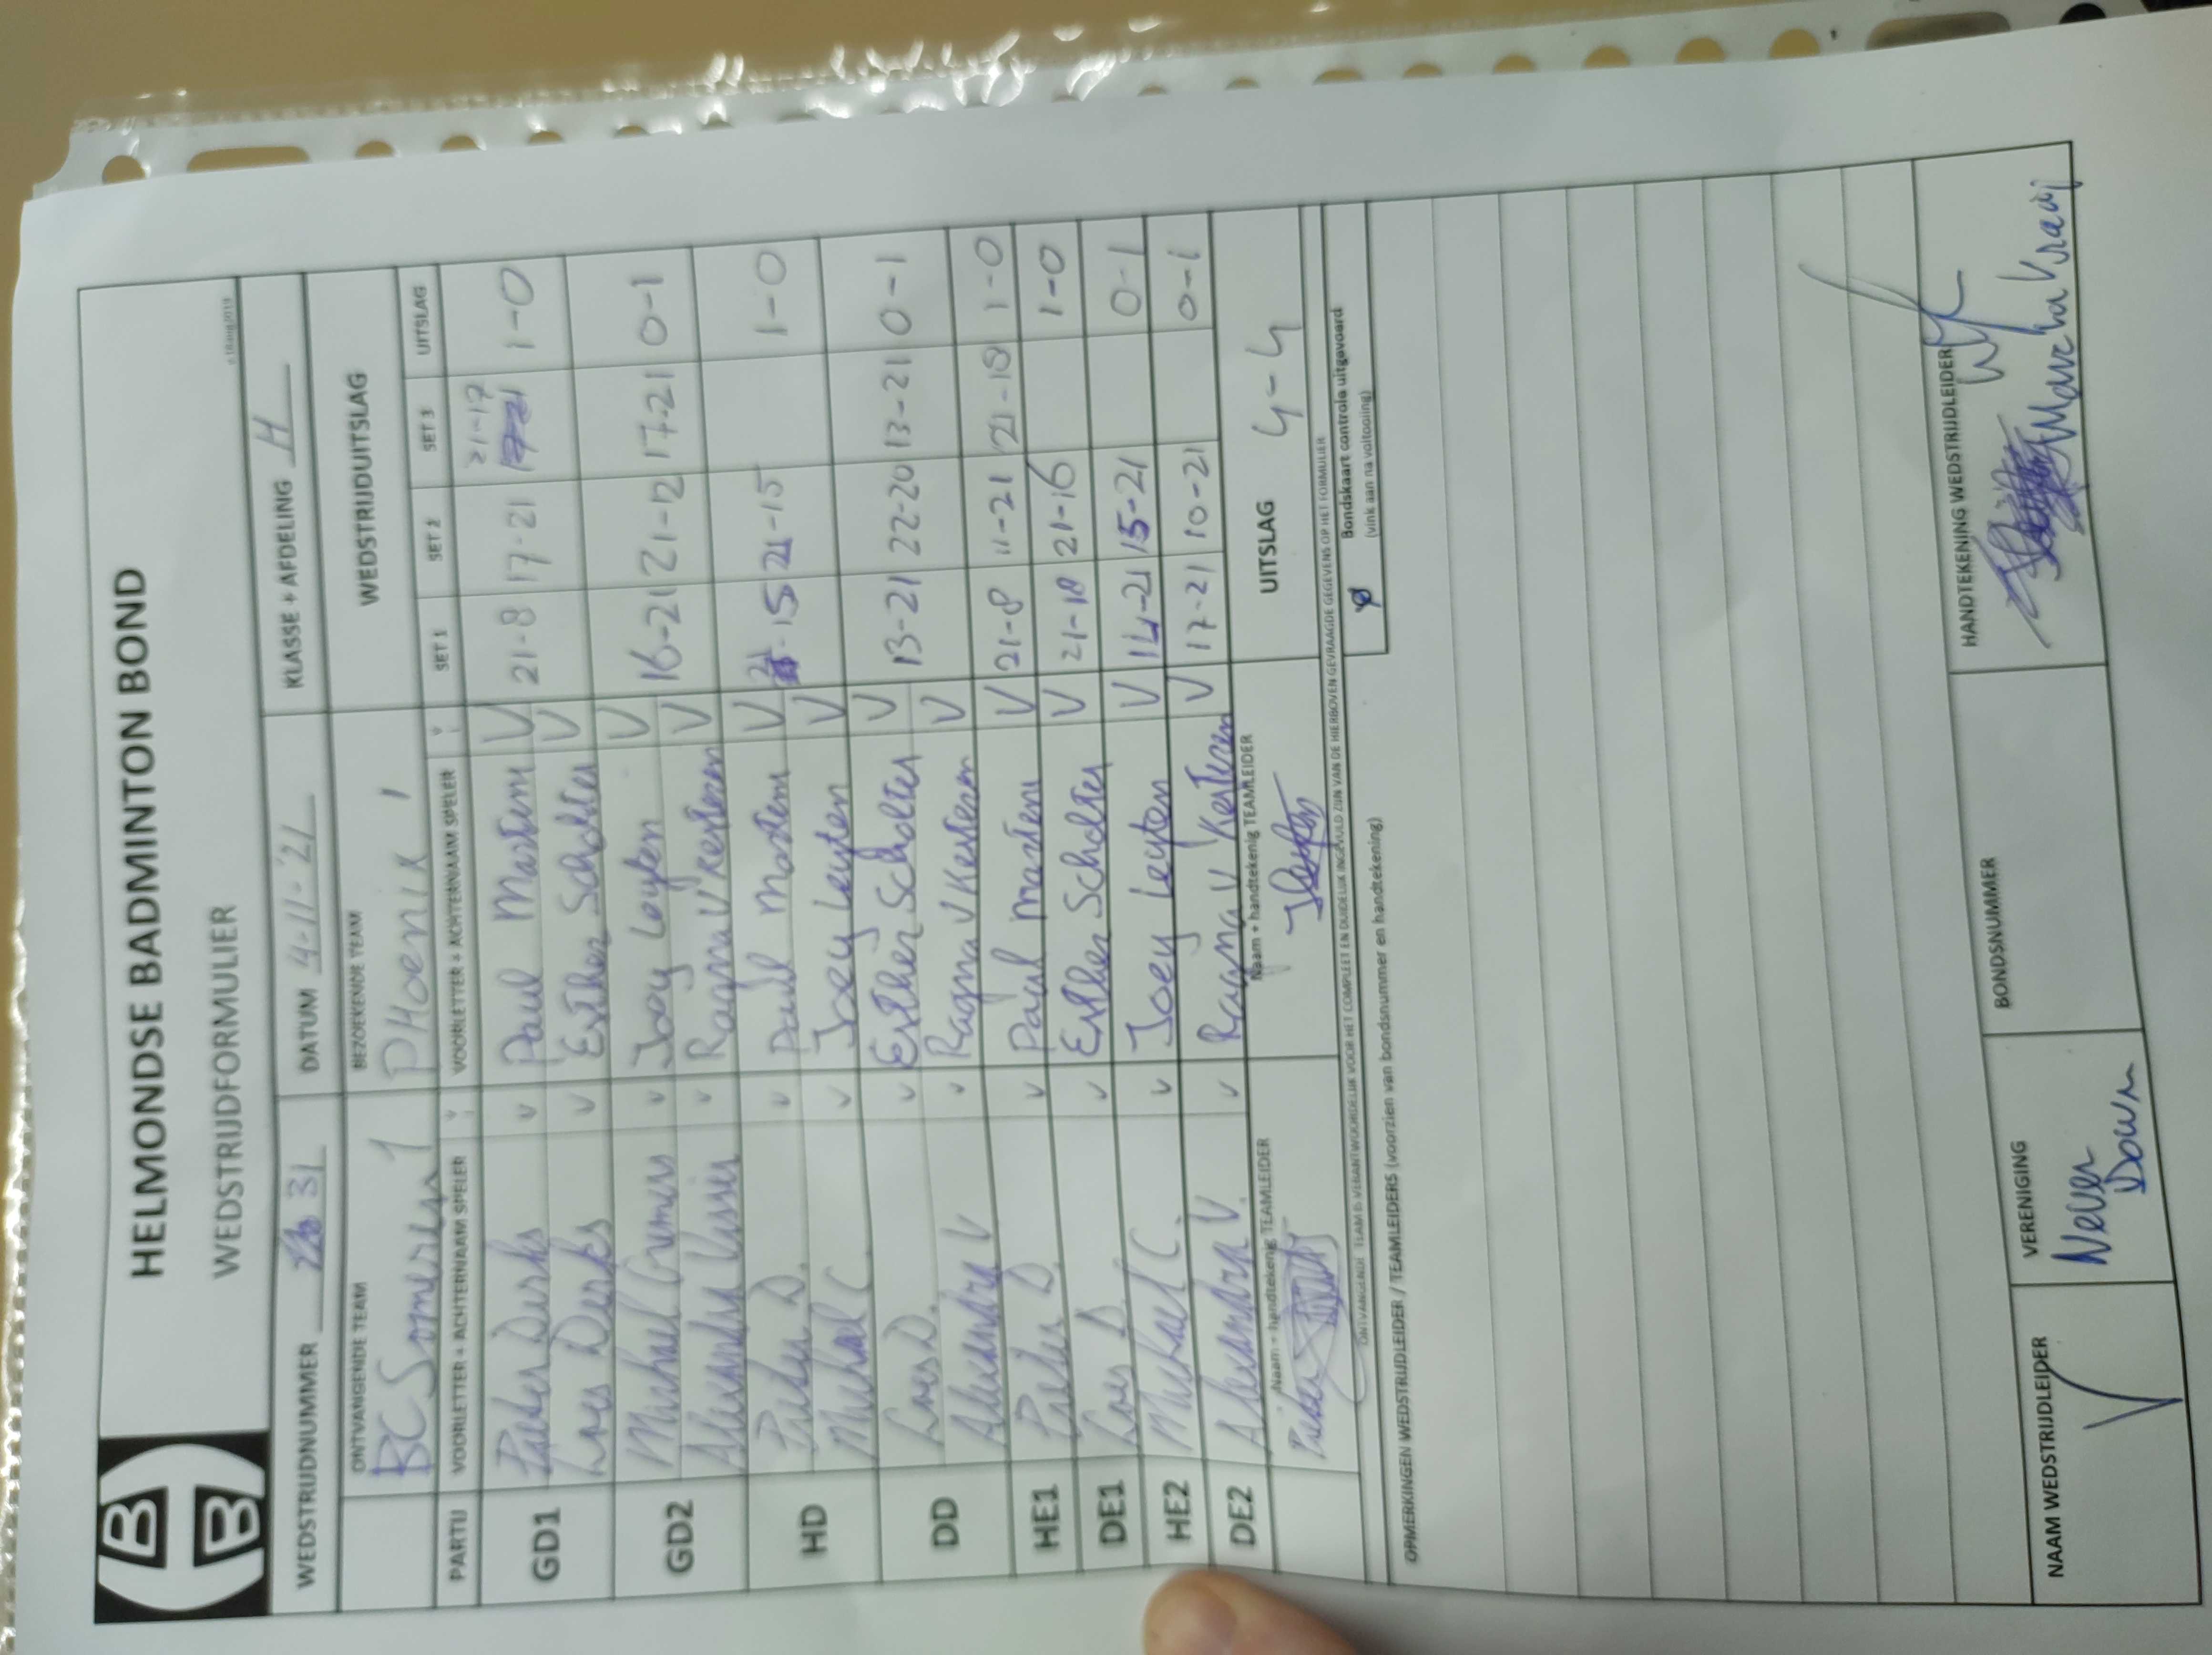 HELMONDSE BADMINTON BOND
WEDSTRIJDFORMULIER
WEDSTRIJDNUMMER 31 DATUM 4-11-'21 KLASSE + AFDELING H
ONTVANGENDE TEAM BEZOEKENDE TEAM WEDSTRIJDUITSLAG
BC Someren 1 PHoenix 1
PARTIJ VOORLETTER + ACHTERNAAM SPELER VOORLETTER + ACHTERNAAM SPELER SET 1 SET 2 SET 3 UITSLAG
21-17
GD1 Pieter Derks v Paul Martens V 21-8 17-21 1-0
Loes Derks v Esther Scholten V
GD2 Michael v Joey Leyten V 16-21 21-12 17-21 0-1
Alexandra Visser v Ragna V Kesteren V
HD Pieter D. v Paul Martens V 21-15 21-15 1-0
Michael C v Joey Leyten V
DD Loes D. v Esther Scholten V 13-21 22-20 13-21 0-1
Alexandra V v Ragna V Kesteren V
HE1 Pieter D. v Paul Martens V 21-8 11-21 21-18 1-0
DE1 Loes D. v Esther Scholten V 21-18 21-16 1-0
HE2 Michael C. v Joey Leyten V 14-21 15-21 0-1
DE2 Alexandra V. v Ragna V Kesteren V 17-21 10-21 0-1
Naam + handtekenig TEAMLEIDER Naam + handtekenig TEAMLEIDER UITSLAG 4-4
Pieter
ONTVANGENDE TEAM IS VERANTWOORDELIJK VOOR HET COMPLEET EN DUIDELIJK INGEVULD ZIJN VAN DE HIERBOVEN GEVRAAGDE GEGEVENS OP HET FORMULIER
Bondskaart controle uitgevoerd
(vink aan na voltooiing)
OPMERKINGEN WEDSTRIJDLEIDER / TEAMLEIDERS (voorzien van bondsnummer en handtekening)
NAAM WEDSTRIJDLEIDER VERENIGING BONDSNUMMER HANDTEKENING WEDSTRIJDLEIDER
Never
Down